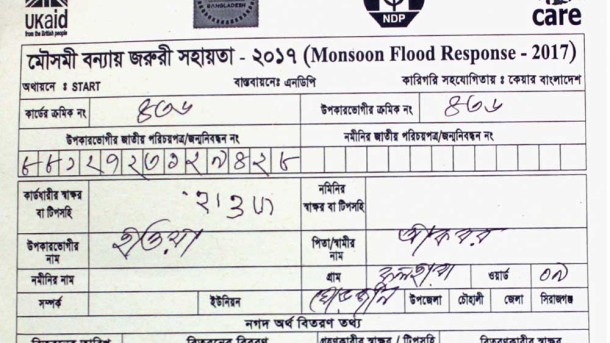 UKaid
from the British people
BANGLADESH
NDP
care
মৌসুমী বন্যায় জরুরী সহায়তা - ২০১৭ (Monsoon Flood Response - 2017)
অর্থায়নে : START বাস্তবায়নেঃ এনডিপি কারিগরি সহযোগিতায় : কেয়ার বাংলাদেশ
কার্ডের ক্রমিক নং ৪৩৬ উপকারভোগীর ক্রমিক নং ৪৩৬
উপকারভোগীর জাতীয় পরিচয়পত্র/জন্মনিবন্ধন নং নমিনীর জাতীয় পরিচয়পত্র/জন্মনিবন্ধন নং
কার্ডধারীর স্বাক্ষর বা টিপসহি নমিনির স্বাক্ষর বা টিপসহি
উপকারভোগীর নাম পিতা/স্বামীর নাম আকবর
নমীনীর নাম গ্রাম ওয়ার্ড ০৯
সম্পর্ক ইউনিয়ন উপজেলা চৌহালী জেলা সিরাজগঞ্জ
নগদ অর্থ বিতরণ তথ্য